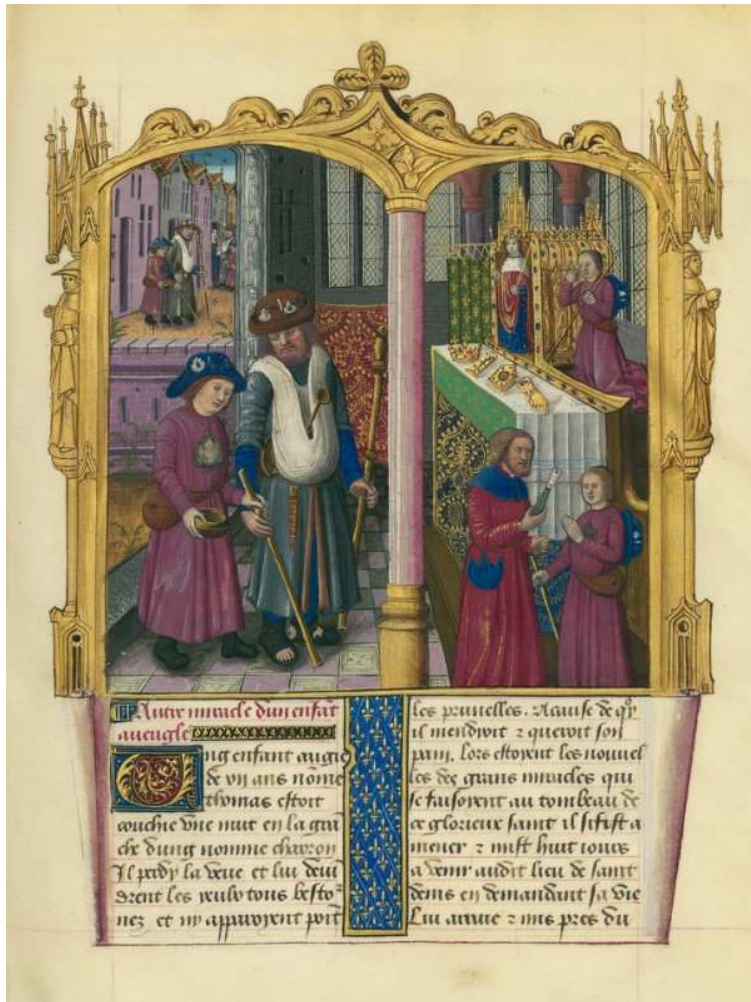 Autre miracle dun enfāt
aueugle
Ung enfant aagie
de vii ans nōme
thomas estoit
couchie vne nuit en la grā
che dung nomme chauron
Il perdy la veue et lui deuī
drent les yeulx tous besto²
nez et ny apparoyent poīt
les prunelles. A cause de qͦy
il mendioit ⁊ queroit son
pain. Lors estoyent les nouuel
les des grans miracles qui
se faisoyent au tombeau de
ce glorieux saint il sifist a
mener ⁊ mist huit iours
a venir audit lieu de saint
denis en demandant sa vie
Lui arriue ⁊ mis pres du